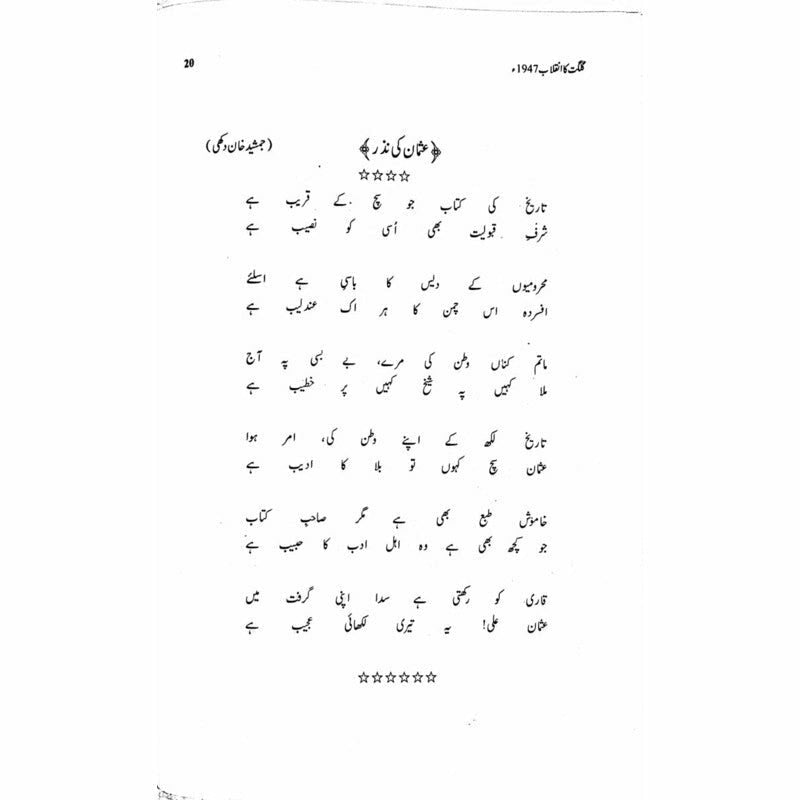 گلگت کا انقلاب 1947ء
20
﴿عثمان کی نذر﴾
(جمشید خان دکھی)
☆☆☆☆
تاریخ کی کتاب جو سچ کے قریب ہے
شرفِ قبولیت بھی اُسی کو نصیب ہے
محرومیوں کے دیس کا باسی ہے اسلئے
افسردہ اس چمن کا ہر اک عندلیب ہے
ماتم کناں وطن کی مرے، بے بسی پہ آج
ملا کہیں پہ شیخ کہیں پر خطیب ہے
تاریخ لکھ کے اپنے وطن کی، امر ہوا
عثمان سچ کہوں تو بلا کا ادیب ہے
خاموش طبع بھی ہے مگر صاحبِ کتاب
جو کچھ بھی ہے وہ اہل ادب کا حبیب ہے
قاری کو رکھتی ہے سدا اپنی گرفت میں
عثمان علی! یہ تیری لکھائی عجیب ہے
☆☆☆☆☆☆